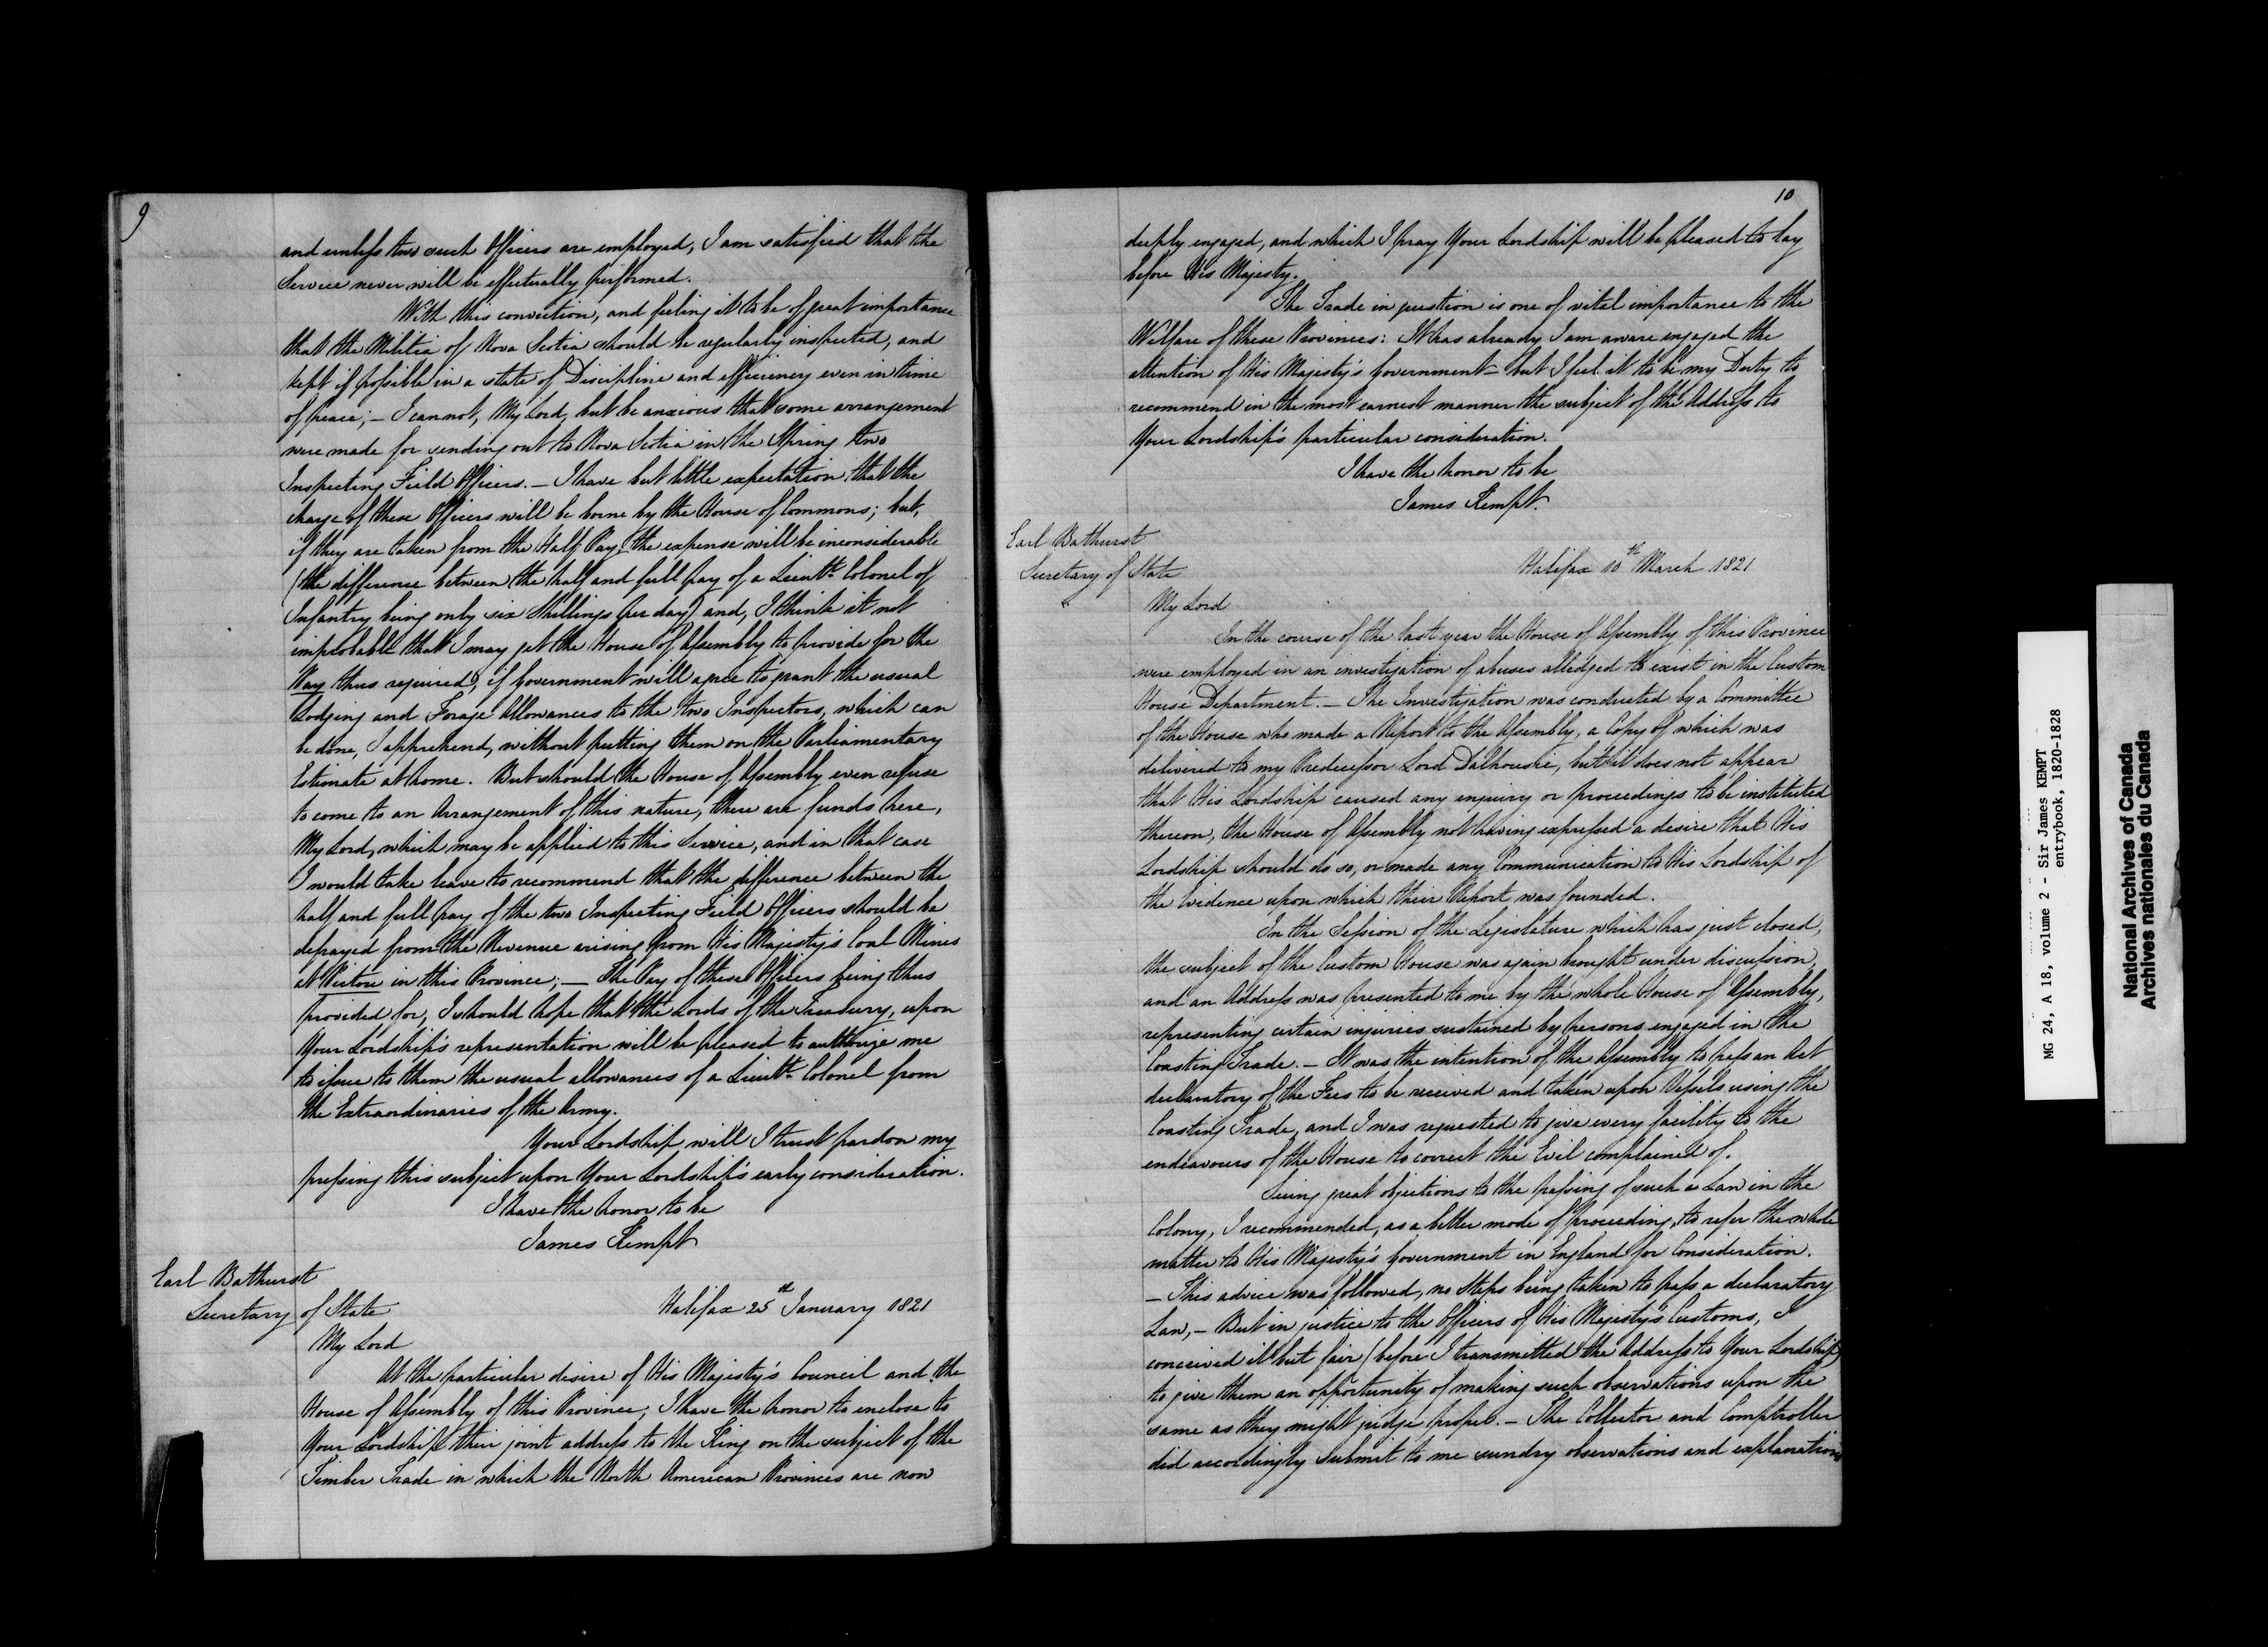 9
and unless two such Officers are employed, I am satisfied that the
Service never will be effectually performed.
With this conviction, and feeling it to be of great importance
that the Militia of Nova Scotia should be regularly inspected, and
kept if possible in a state of Discipline and efficiency even in time
of peace; – I cannot, My Lord, but be anxious that some arrangement
were made for sending out to Nova Scotia in the Spring two
Inspecting Field Officers. – I have but little expectation that the
charge of these Officers will be borne by the House of Commons; but,
if they are taken from the Half Pay, the expense will be inconsiderable
(the difference between the half and full pay of a Lieutt. Colonel of
Infantry being only six Shillings per day) and, I think it not
improbable that I may get the House of Assembly to provide for the
Pay thus required, if Government will agree to grant the usual
Lodging and Forage Allowances to the two Inspectors, which can
be done, I apprehend, without putting them on the Parliamentary
Estimate at home. But should the House of Assembly even refuse
to come to an Arrangement of this nature, there are funds here,
My Lord, which may be applied to this Service, and in that case
I would take leave to recommend that the difference between the
half and full pay of the two Inspecting Field Officers should be
defrayed from the Revenue arising from His Majesty's Coal Mines
at Pictou in this Province; — The Pay of these Officers being thus
provided for, I should hope that the Lords of the Treasury, upon
Your Lordship's representation will be pleased to authorize me
to issue to them the usual allowances of a Lieutt. Colonel from
the Extraordinaries of the Army.
Your Lordship will I trust pardon my
pressing this subject upon Your Lordship's early consideration.
I have the honor to be
James Kempt
Earl Bathurst
Secretary of State
Halifax 25th January 1821
My Lord
At the particular desire of His Majesty's Council and the
House of Assembly of this Province, I have the honor to enclose to
Your Lordship their joint address to the King on the subject of the
Timber Trade in which the North American Provinces are now
10
deeply engaged, and which I pray Your Lordship will be pleased to lay
before His Majesty.
The Trade in question is one of vital importance to the
Welfare of these Provinces: It has already I am aware engaged the
attention of His Majesty's Government – but I feel it to be my Duty to
recommend in the most earnest manner the subject of the Address to
Your Lordship's particular consideration.
I have the honor to be
James Kempt.
Earl Bathurst
Secretary of State
Halifax 10th March 1821
My Lord
In the course of the last year the House of Assembly of this Province
were employed in an investigation of abuses alledged to exist in the Custom
House Department. – The Investigation was conducted by a Committee
of the House who made a Report to the Assembly, a Copy of which was
delivered to my Predecessor Lord Dalhousie, but it does not appear
that His Lordship caused any enquiry or proceedings to be instituted
thereon, the House of Assembly not having expressed a desire that His
Lordship should do so, or made any Communication to His Lordship of
the Evidence upon which their Report was founded.
In the Session of the Legislature which has just closed,
the subject of the Custom House was again brought under discussion,
and an Address was presented to me by the whole House of Assembly,
representing certain injuries sustained by persons engaged in the
Coasting Trade. – It was the intention of the Assembly to pass an Act
declaratory of the Fees to be received and taken upon Vessels using the
Coasting Trade, and I was requested to give every facility to the
endeavours of the House to correct the Evil complained of.
Seeing great objections to the passing of such a Law in the
Colony, I recommended, as a better mode of proceeding, to refer the whole
matter to His Majesty's Government in England for Consideration.
– This advice was followed, no Steps being taken to pass a declaratory
Law, – But in justice to the Officers of His Majesty's Customs, I
conceived it but fair (before I transmitted the Address to Your Lordship)
to give them an opportunity of making such observations upon the
same as they might judge proper. – The Collector and Comptroller
did accordingly submit to me sundry observations and explanations
MG 24, A 18, volume 2 - Sir James KEMPT
entrybook, 1820-1828
National Archives of Canada
Archives nationales du Canada